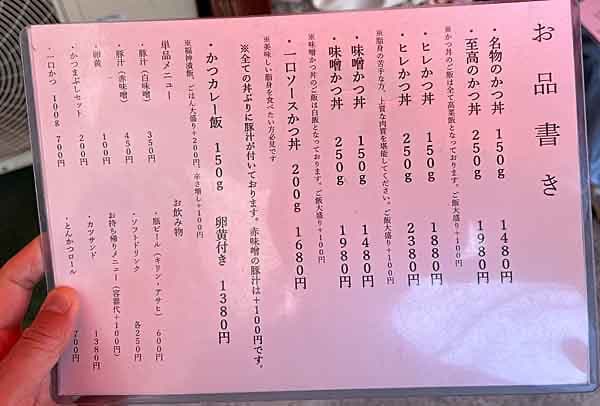 お品書き
・名物のかつ丼 150g 1480円
・至高のかつ丼 250g 1980円
※かつ丼のご飯は全て高菜飯となっております。ご飯大盛り+100円
・ヒレかつ丼 150g 1880円
・ヒレかつ丼 250g 2380円
※脂身の苦手な方、上質な肉質を堪能してください。ご飯大盛り+100円
・味噌かつ丼 150g 1480円
・味噌かつ丼 250g 1980円
※味噌かつ丼のご飯は白飯となっております。ご飯大盛り+100円
・一口ソースかつ丼 200g 1680円
※美味しい脂身を食べたい方必見です
※全ての丼ぶりに豚汁が付いております。赤味噌の豚汁は+100円です。
・かつカレー飯 150g 卵黄付き 1380円
※福神漬飯、ごはん大盛り+200円 辛さ増し+100円
単品メニュー
・豚汁(白味噌) 350円
・豚汁(赤味噌) 450円
・卵黄 100円
・かつまぶしセット 200円
・一口かつ 100g 700円
お飲み物
・瓶ビール(キリン・アサヒ) 600円
・ソフトドリンク 各250円
お持ち帰りメニュー(容器代+100円)
・カツサンド 1380円
・とんかつロール 700円